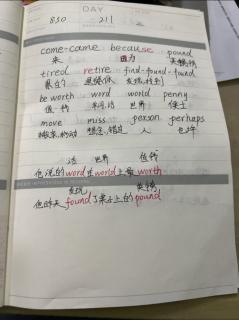 DAY
850 211
come-came because pound
来 因为 英镑
tired retire find-found-found
累的 退休 发现,找到
be worth word world penny
值钱 单词,话 世界 便士
move miss person perhaps
搬家,移动 想念,错过 人 也许
话 世界 值钱
他说的word是world上最worth
发现 英镑
他昨天found了桌子上的pound